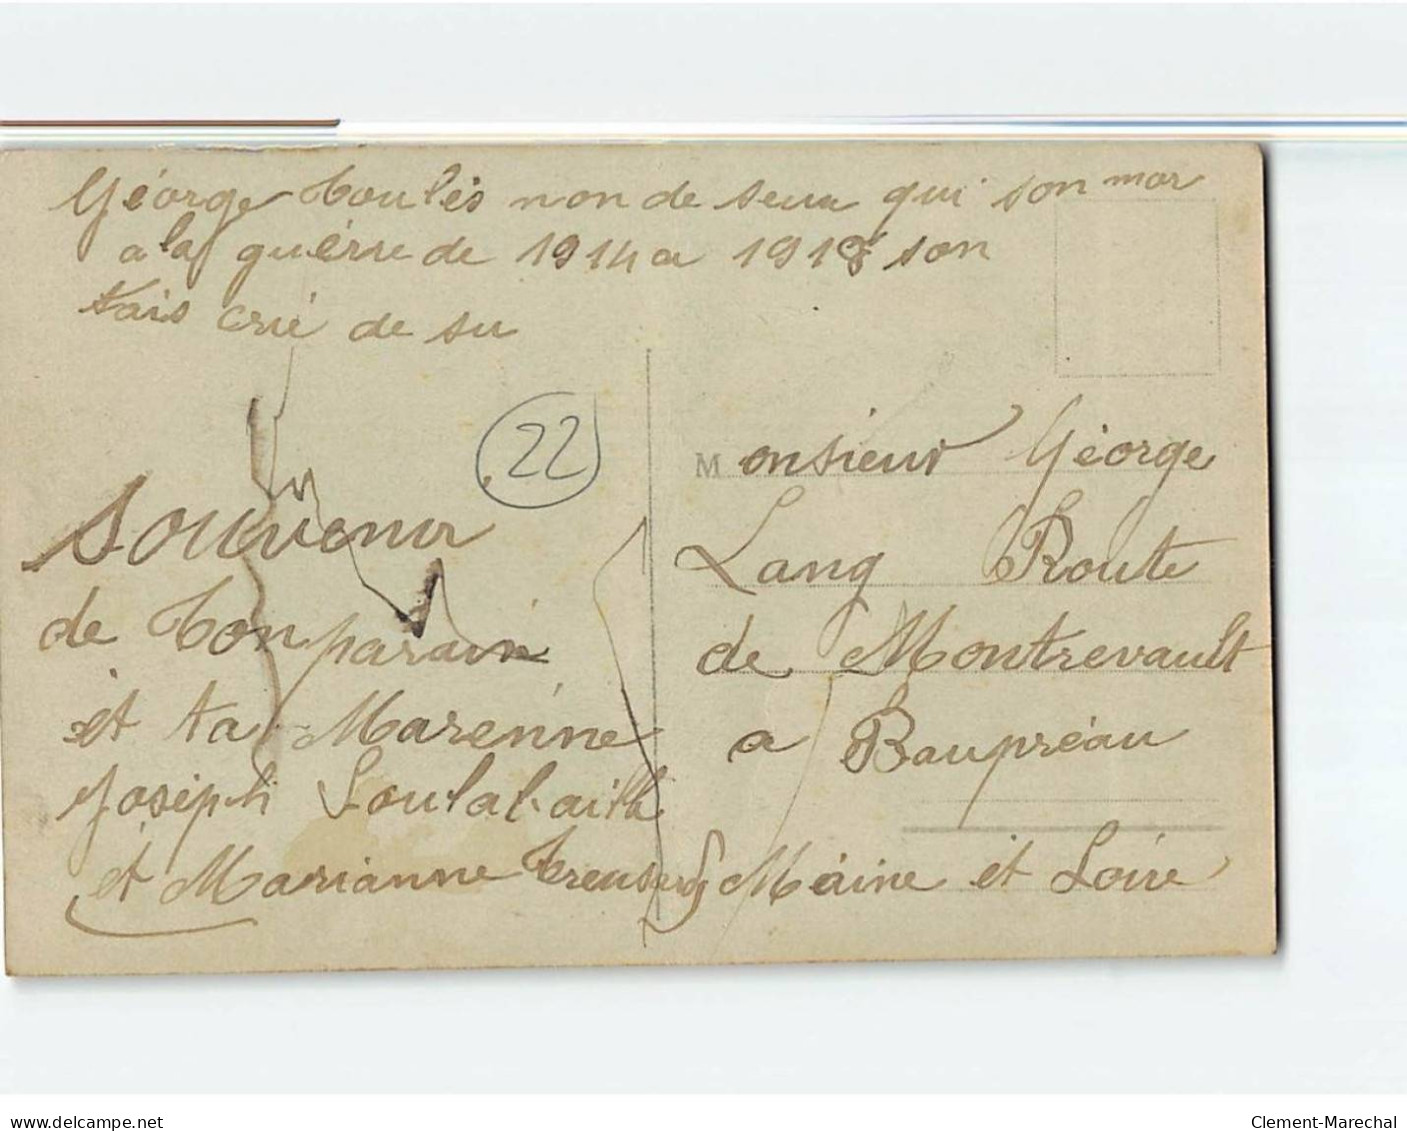 Géorge toulès non de seux qui son mor
a la guérre de 1914 a 1918 son
tais crié de su
22
Souvenir
de ton parain
et ta Marenne
Joseph
et Marianne
Monsieur Géorge
Lang Route
de Montrevault
a Baupréau
Maine et Loire
www.delcampe.net
Clement-Marechal